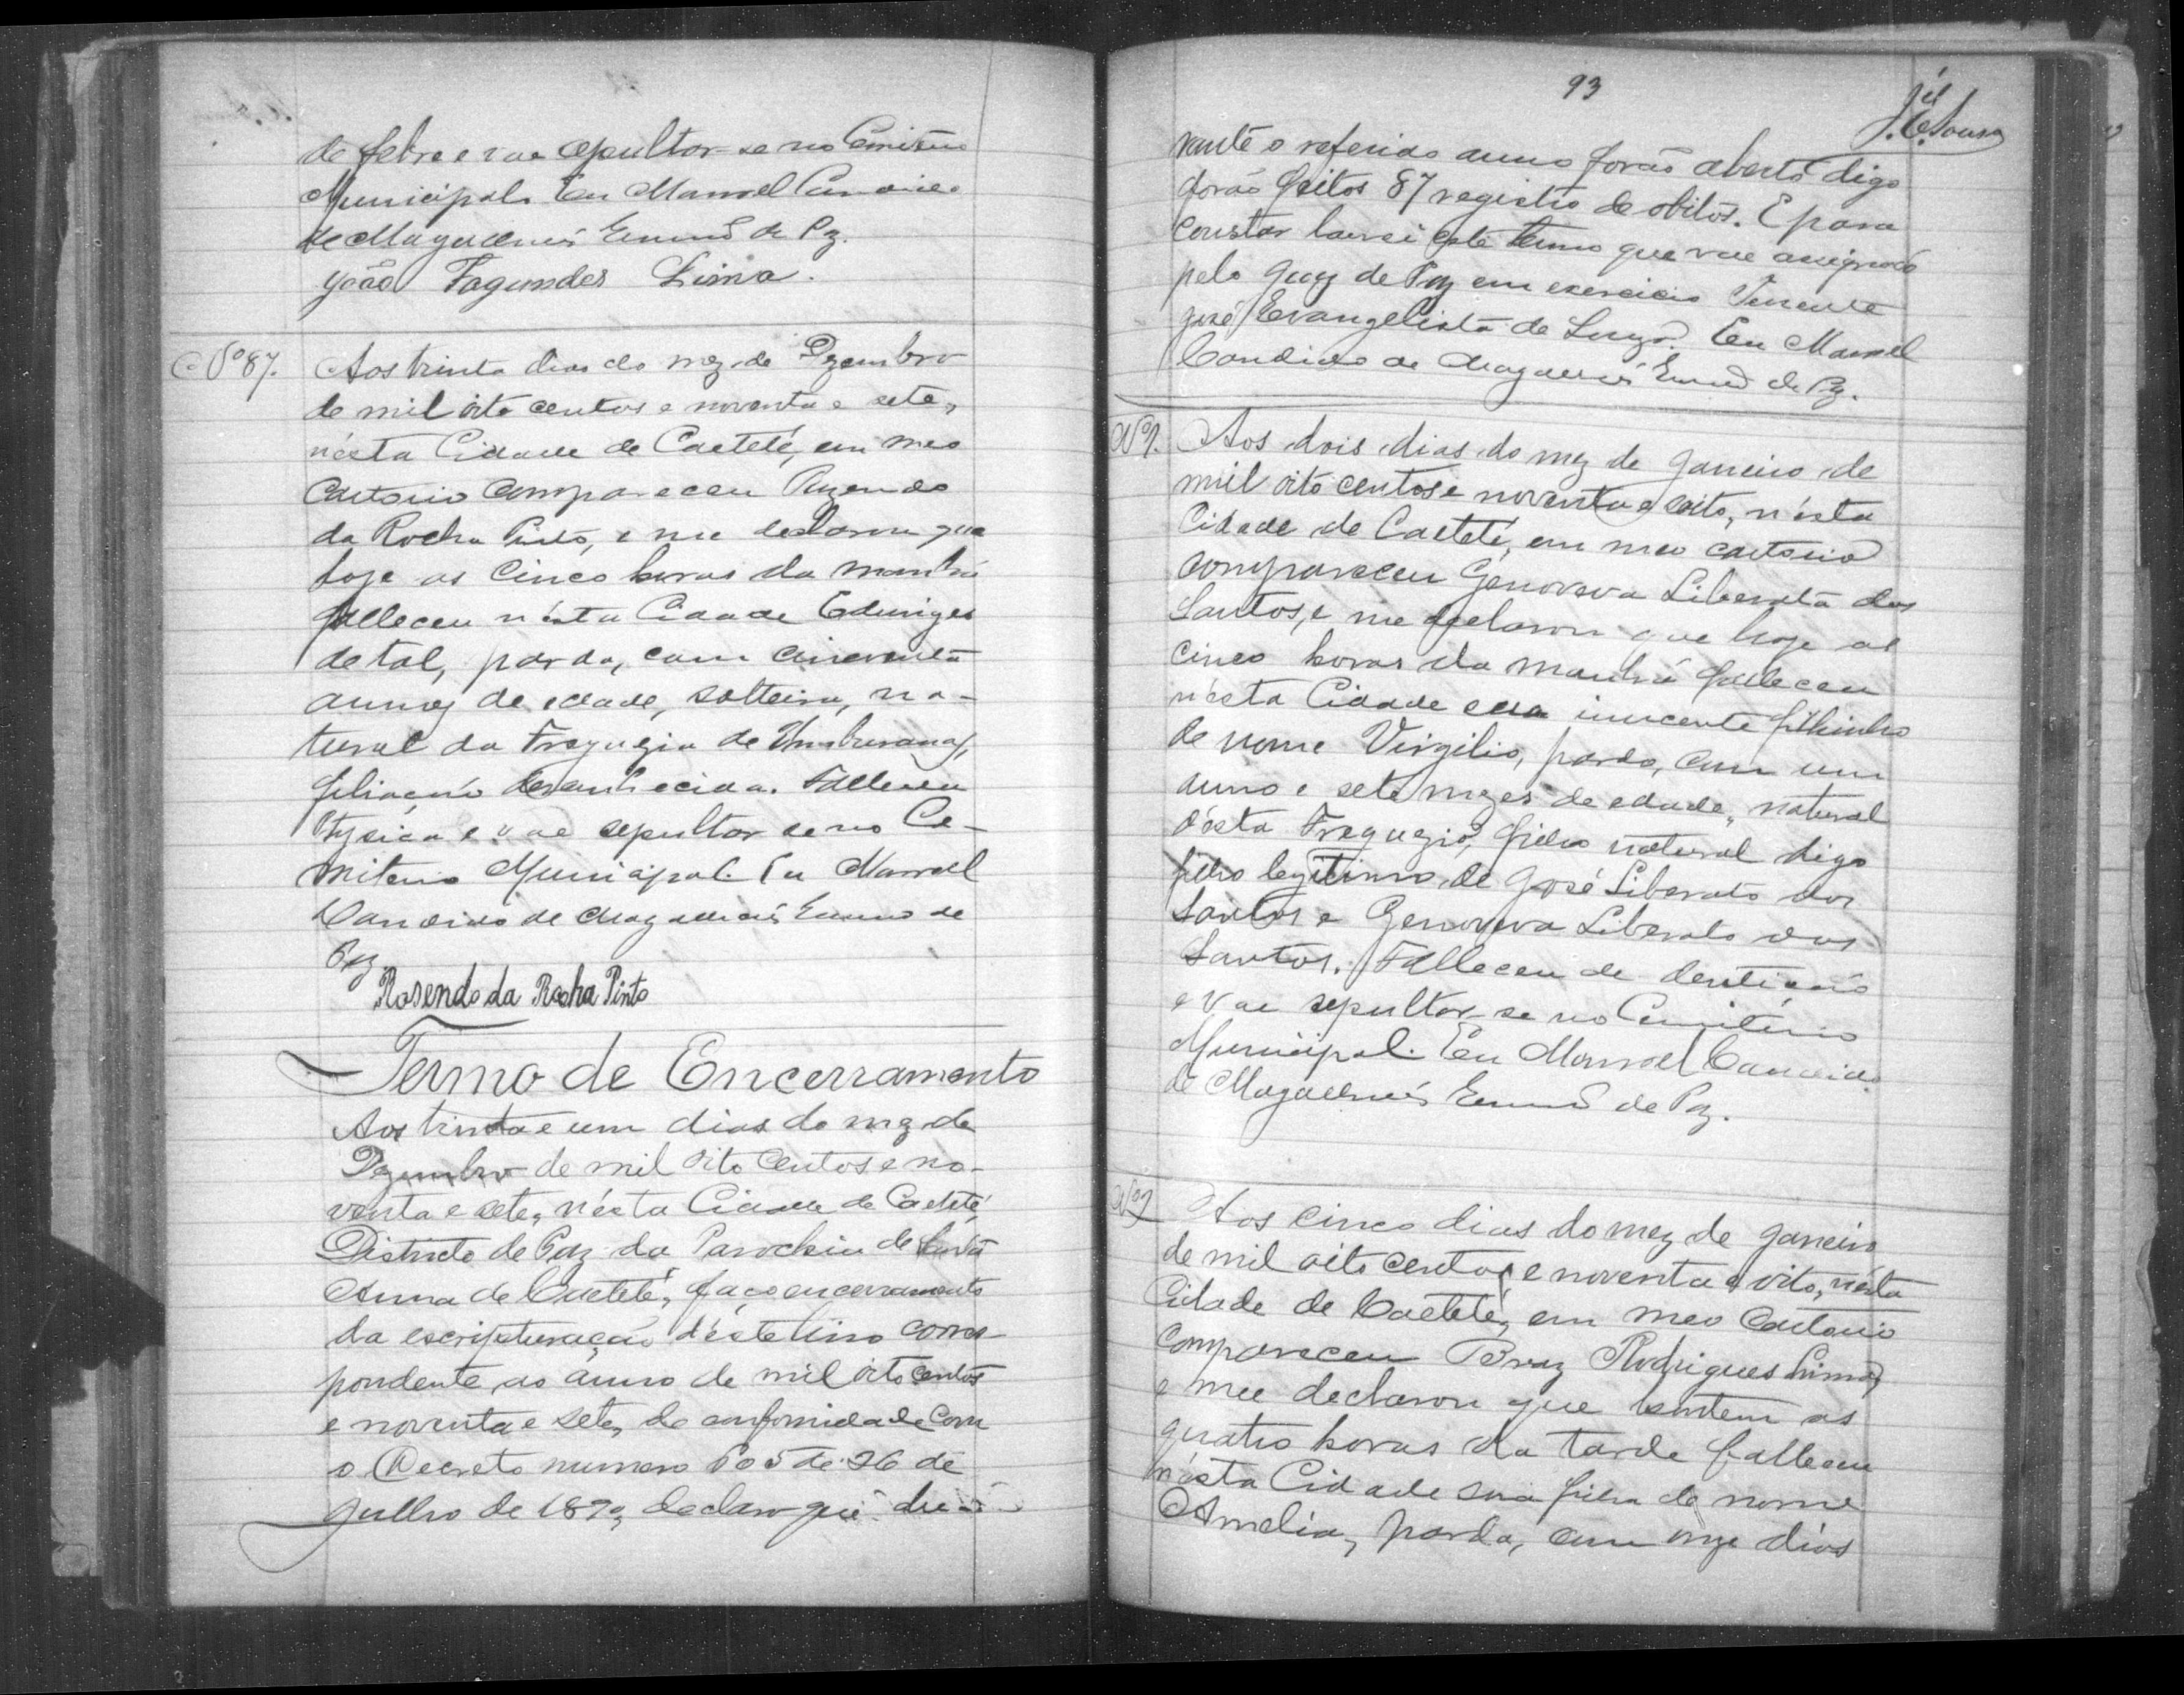 de febre e vae sepultar-se no Cemiterio
Municipal. Eu Manoel Candido
de Magalhães Escrivão de Paz.
João Fagundes Lima.
Nº 87.
Aos trinta dias do mez de Dezembro
de mil oito centos e noventa e sete,
nésta Cidade de Caeteté, em meo
Cartorio compareceu Rozendo
da Rocha Pinto, e me declarou que
hoje as cinco horas da manhã
falleceu nésta Cidade Eduviges
de tal, parda, com cincoenta
annos de edade, solteira, na-
tural da Freguezia de Umburanas,
filiação desconhecida. Falleceu
thysica e vae sepultar se no Ce-
miterio Municipal. Eu Manoel
Candido de Magalhães Escrivão de
Paz
Rosendo da Rocha Pinto
Termo de Encerramento
Aos trinta e um dias do mez de
Dezembro de mil oito centos e no-
venta e sete, nésta Cidade de Caeteté,
Districto de Paz da Parochia de Santa
Anna de Caeteté, faço encerramento
da escripturação déste livro corres-
pondente ao anno de mil oito centos
e noventa e sete, de conformidade com
o Decreto numero 605 de 26 de
Julho de 1890, declaro que du-
93
J. E. Souza
rante o referido anno forão aberto digo
forão feitos 87 registro de obitos. E para
constar lavrei este termo que vae assignado
pelo Juiz de Paz em exercicio Tenente
José Evangelista de Souza. Eu Manoel
Candido de Magalhães Escrivão de Paz.
Nº 1.
Aos dois dias do mez de Janeiro de
mil oito centos e noventa e oito, nésta
Cidade de Caeteté, em meo cartorio
compareceu Genoveva Liberata dos
Santos, e me declarou que hoje as
cinco horas da manhã falleceu
nésta Cidade seu innocente filhinho
de nome Virgilio, pardo, com um
anno e sete mezes de edade, natural
désta Freguezia, filho natural digo
filho legitimo de José Liberato dos
Santos e Genoveva Liberato dos
Santos. Falleceu de dentição
e vae sepultar-se no Cemitério
Municipal. Eu Manoel Candido
de Magalhães Escrivão de Paz.
Nº 2
Aos cinco dias do mez de Janeiro
de mil oito centos e noventa e oito, nésta
Cidade de Caeteté, em meo Cartorio
compareceu Braz Rodrigues Lima,
e me declarou que hontem as
quatro horas da tarde falleceu
nésta Cidade sua filha de nome
Amelia, parda, com onze dias